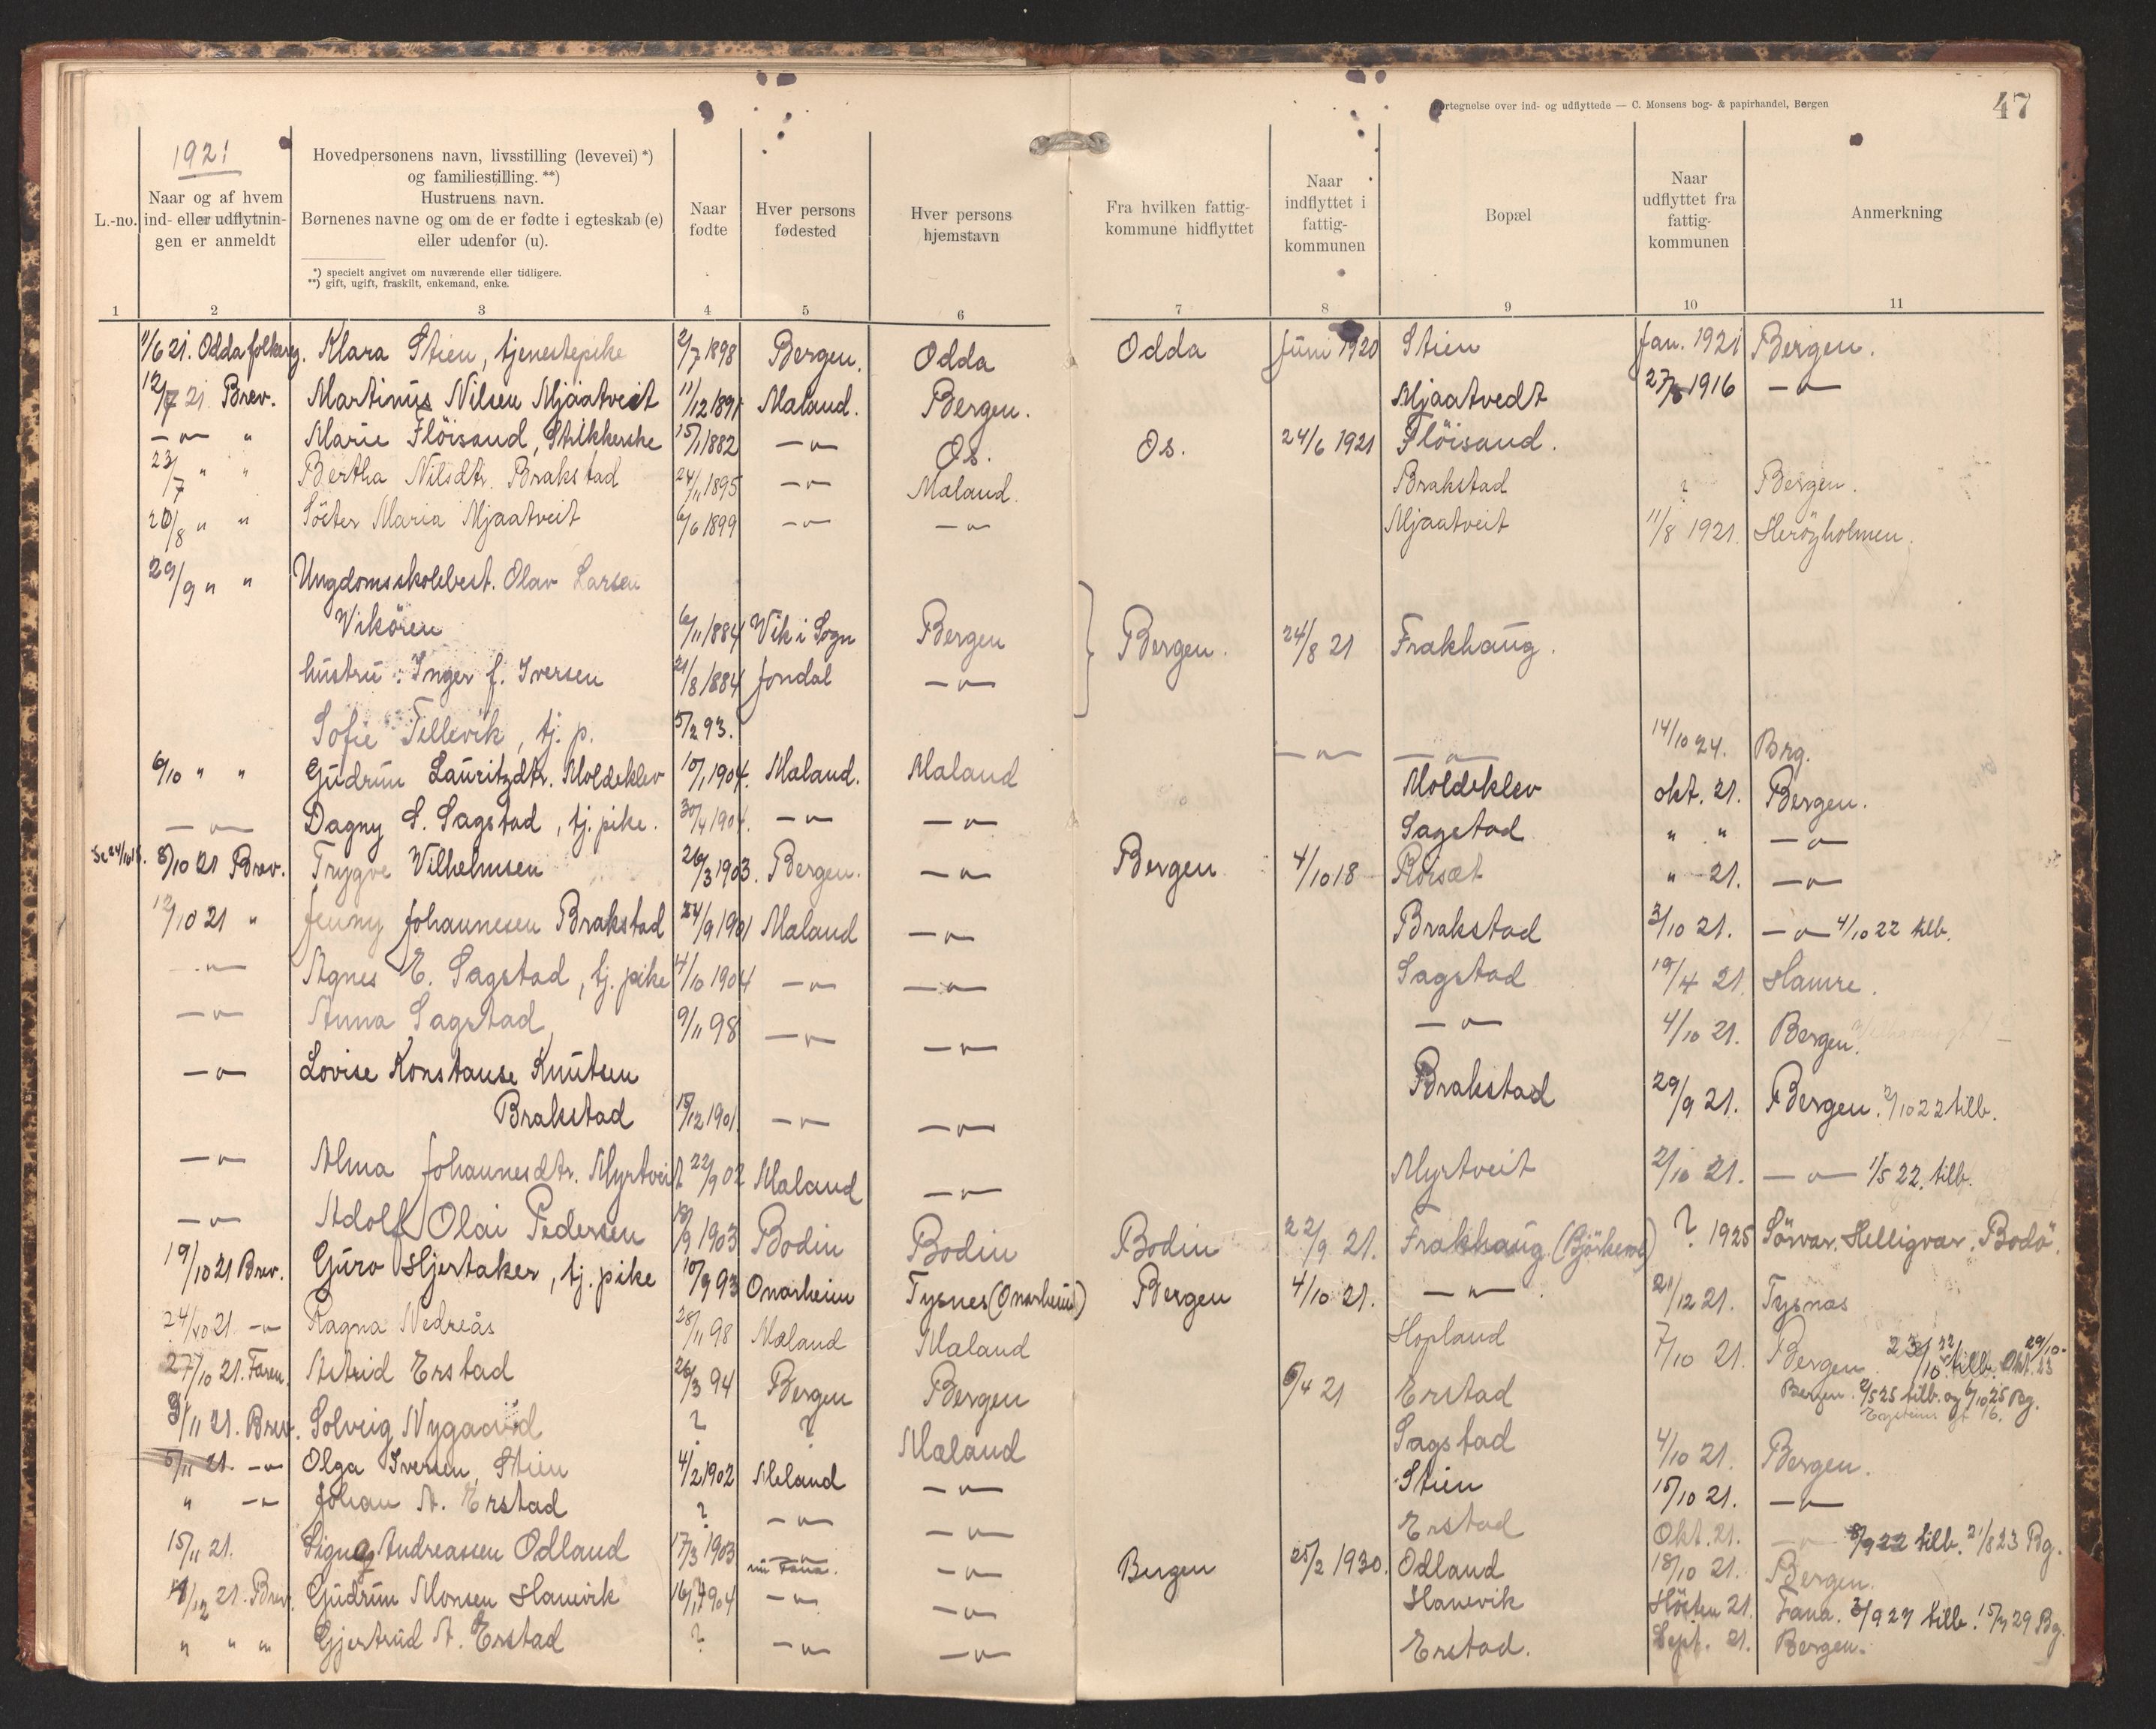 Fortegnelse over ind- og udflyttede — C. Monsens bog- & papirhandel, Bergen
47
1921
L.-no.
Naar og af hvem
ind- eller udflytnin-
gen er anmeldt
Hovedpersonens navn, livsstilling (levevei) *)
og familiestilling. **)
Hustruens navn.
Børnenes navne og om de er fødte i egteskab (e)
eller udenfor (u).
*) specielt angivet om nuværende eller tidligere.
**) gift, ugift, fraskilt, enkemand, enke.
Naar
fødte
Hver persons
fødested
Hver persons
hjemstavn
Fra hvilken fattig-
kommune hidflyttet
Naar
indflyttet i
fattig-
kommunen
Bopæl
Naar
udflyttet fra
fattig-
kommunen
Anmerkning
1 2 3 4 5 6 7 8 9 10 11
11/6 21. Odda folkereg. Klara Stien, tjenestepike 2/7 1898 Bergen. Odda Odda Juni 1920 Stien Jan. 1921 Bergen.
12/7 21. Brev. Martinus Nilsen Mjaatveit 11/12 1891 Mæland. Bergen. Mjaatvedt 27/8 1916 —"—
—"— " Marie Flöisand, Strikkerske 15/1 1882 —"— Os. Os. 24/6 1921 Flöisand.
23/7 " " Bertha Nilsdtr. Brakstad 24/11 1895 —"— Mæland. Brakstad ? Bergen.
20/8 " " Söster Maria Mjaatveit 6/6 1899 —"— —"— Mjaatveit 11/8 1921. Heröyholmen.
29/9 " " Ungdomsskolebest. Olav Larsen
Vikören 6/11 1884 Vik i Sogn Bergen Bergen. 24/8 21 Frakhaug.
hustru: Inger f. Iversen 21/8 1884 Jondal —"—
Sofie Tellevik, tj. p. 5/2 93. —"— —"— 14/10 24. Brg.
6/10 " " Gudrun Lauritzdtr. Moldeklev 10/1 1904. Mæland. Mæland Moldeklev okt. 21. Bergen.
—"— Dagny S. Sagstad, tj. pike. 30/4 1904. —"— —"— Sagstad " " —"—
8/10 21 Brev. Trygve Vilhelmsen 26/3 1903. Bergen. —"— Bergen 4/10 18 Rossæt " 21. —"—
12/10 21 " Jenny Johannesen Brakstad 24/9 1901 Mæland —"— Brakstad 3/10 21. —"— 4/10 22 tilb.
—"— Agnes E. Sagstad, tj. pike 4/10 1904 —"— —"— Sagstad 19/4 21. Hamre.
—"— Anna Sagstad 9/11 98 —"— —"— —"— 4/10 21. Bergen.
—"— Lovise Konstanse Knutsen
Brakstad 15/12 1901. —"— —"— Brakstad 29/9 21. Bergen. 2/10 22 tilb.
—"— Alma Johannesdtr. Myrtveit 22/9 02 Mæland —"— Myrtveit 2/10 21. —"— 1/5 22. tilb.
—"— Adolf Olai Pedersen 18/9 1903 Bodin Bodin Bodin 22/9 21. Frakhaug. ? 1925 Sörvær. Helligvær. Bodö.
19/10 21 Brev. Guro Hjertaker, tj. pike 10/9 93 Onarheim Tysnes (Onarheim) Bergen 4/10 21. —"— 21/12 21. Tysnæs
24/10 21 —"— Ragna Nedreås 28/11 98 Mæland Mæland Hopland 7/10 21. Bergen. tilb. Okt. 23
27/10 21. Faren. Astrid Erstad 26/3 94 Bergen Bergen 6/4 21 Erstad Bergen. 2/5 25 tilb. og 6/10 25 Bg.
9/11 21. Brev. Solveig Nygaard ? ? Mæland Sagstad 4/10 21. Bergen.
5/11 21. —"— Olga Iversen Stien 4/2 1902 Mæland —"— Stien 15/10 21. —"—
" —"— Johan A. Erstad ? —"— —"— Erstad Okt. 21. —"— 8/9 22 tilb. 21/8 23 Bg.
15/11 21. Signe Andreassen Odland 17/3 1903 —"— nu Fana. —"— Bergen 25/2 1930. Odland 18/10 21. Bergen.
14/12 21. Brev. Gudrun Monsen Hanevik —"— —"— Hanevik Hösten 21. Fana. tilb. Bg.
" " " Gjertrud A. Erstad ? —"— —"— Erstad. Sept. 21. Bergen.